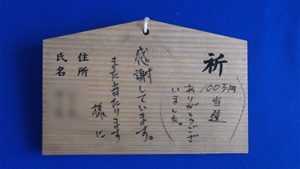 祈
1003円当選
ありがとうござい
いました。
感謝しています。
また当たります
様に
住所
氏名